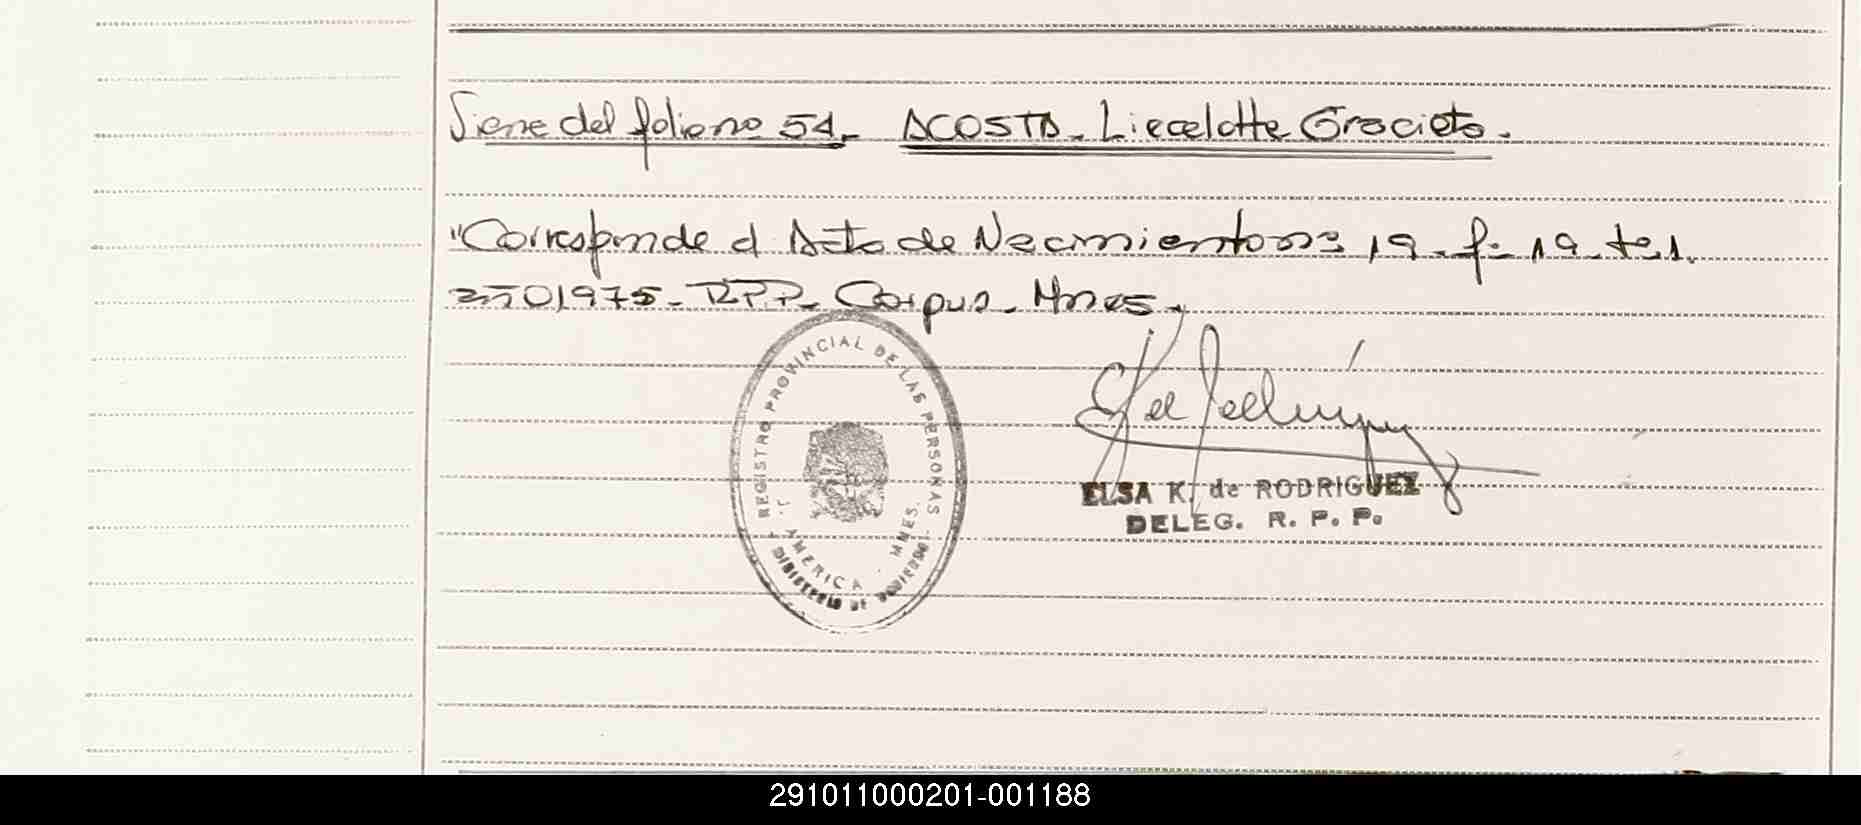 Viene del folio no 54. ACOSTA. Liecelotte Graciela.
"Corresponde al Acta de Nacimiento no 19. fº 19. tº 1.
año 1975. R.P.P. Corpus. Mnes.
REGISTRO PROVINCIAL DE LAS PERSONAS
MINISTERIO DE GOBIERNO
J. AMERICA. MNES.
ELSA K. de RODRIGUEZ
DELEG. R. P. P.
291011000201-001188